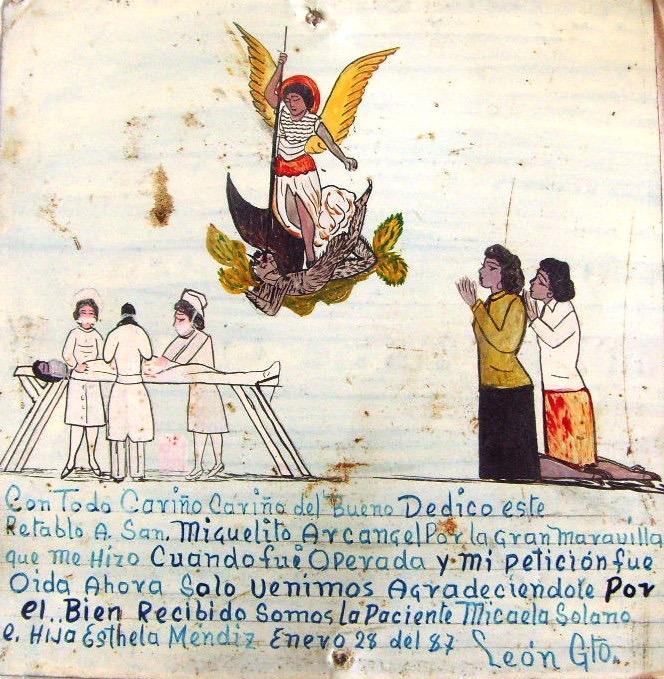 Con Todo Cariño Cariño del Bueno Dedico este
Retablo A. San. Miguelito Arcangel Por la Gran maravilla
que me Hizo Cuando fue Operada y mi petición fue
Oida Ahora Solo Venimos Agradeciendole Por
el.. Bien Recibido Somos La Paciente Micaela Solano
e. Hija Esthela Méndiz Enero 28 del 87
León Gto.